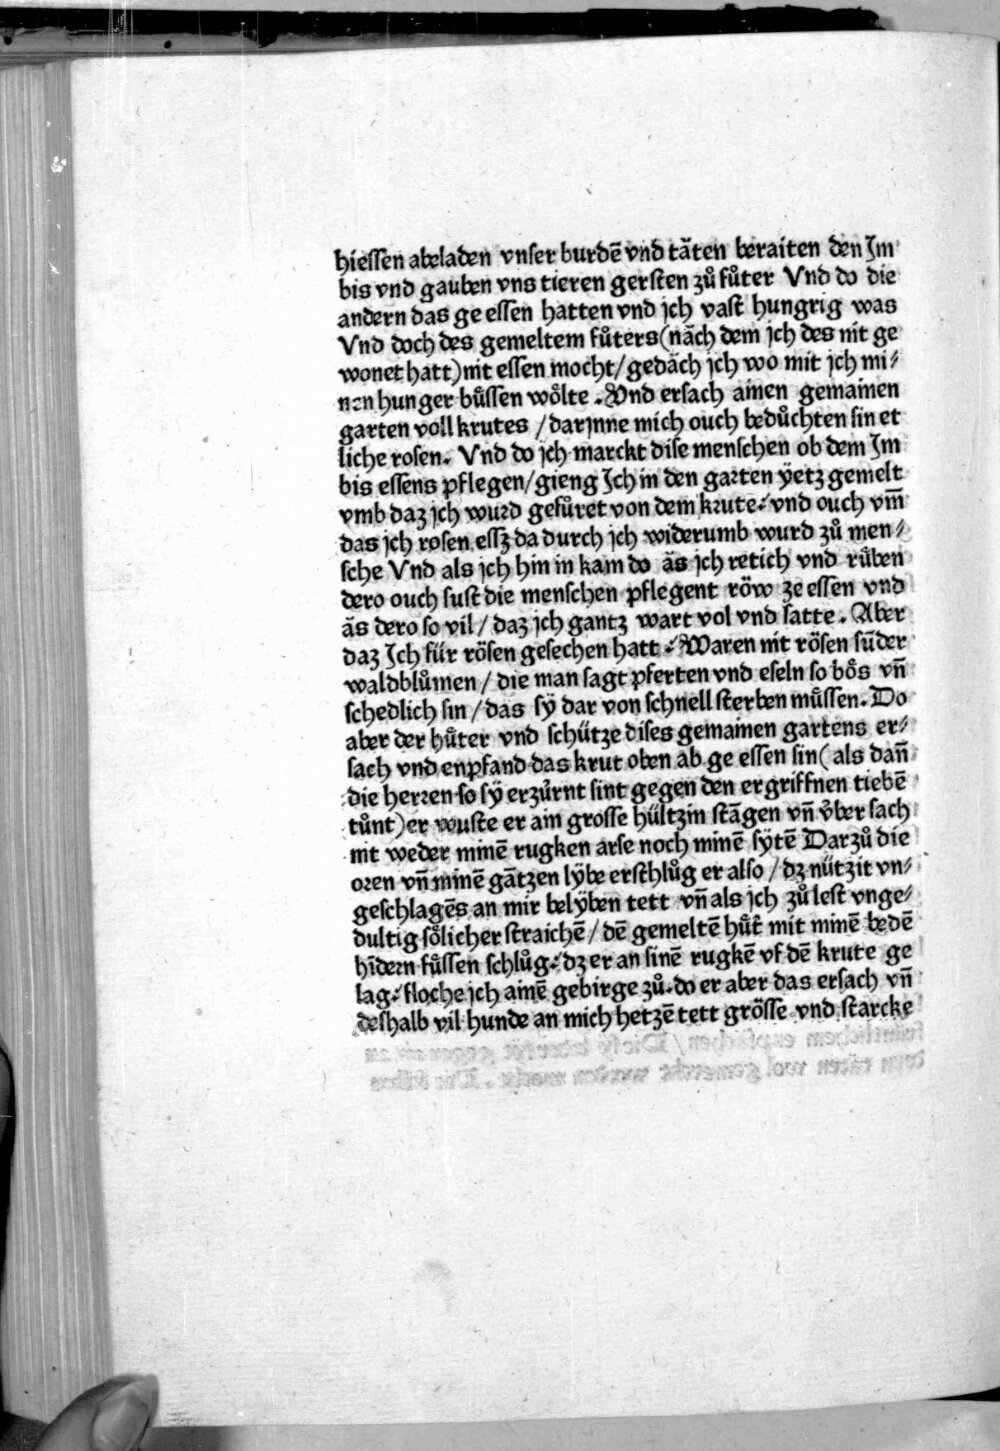 hiessen abeladen vnser burdē vnd täten beraiten den Jm
bis vnd gauben vns tieren gersten zů fůter Vnd do die
andern das ge essen hatten vnd jch vast hungrig was
Vnd doch des gemeltem fůters(näch dem jch des nit ge
wonet hatt)nit essen mocht/gedäch jch wo mit jch mi⸗
nen hunger bůssen wölte. Vnd ersach ainen gemainen
garten voll krutes /darjnne mich ouch bedůchten sin et
liche rosen. Vnd do jch marckt dise menschen ob dem Jm
bis essens pflegen/gieng Jch in den garten ÿetz gemelt
vmb daz jch wurd gefůret von dem krute⸗ vnd ouch vm̄
das jch rosen essz da durch jch widerumb wurd zů men⸗
sche Vnd als jch hin in kam do äs jch retich vnd růben
dero ouch sust die menschen pflegent röw ze essen vnd
äs dero so vil/ daz jch gantz wart vol vnd satte. Aber
daz Jch für rösen gesechen hatt⸗ Waren nit rösen sūder
waldblůmen/ die man sagt pferten vnd eseln so bös vn̄
schedlich sin/das sÿ dar von schnell sterben můssen. Do
aber der hůter vnd schütze dises gemainen gartens er⸗
sach vnd enpfand das krut oben ab ge essen sin( als dan̄
die herren so sÿ erzůrnt sint gegen den ergriffnen tiebē
tůnt)er wuste er ain grosse hültzin stāgen vn̄ v̊ber sach
nit weder minē rugken arse noch minē sÿtē Darzů die
oren vn̄ minē gātzen lÿbe erschlůg er also/ dz nützit vn⸗
geschlagēs an mir belÿben tett vn̄ als jch zů lest vnge⸗
dultig sölicher straichē/ dē gemeltē hůt̄ mit minē bedē
hīdern fůssen schlůg⸗ dz er an sinē rugkē vf dē krute ge
lag⸗ floche jch ainē gebirge zů. do er aber das ersach vn̄
deshalb vil hunde an mich hetzē tett grösse vnd starcke